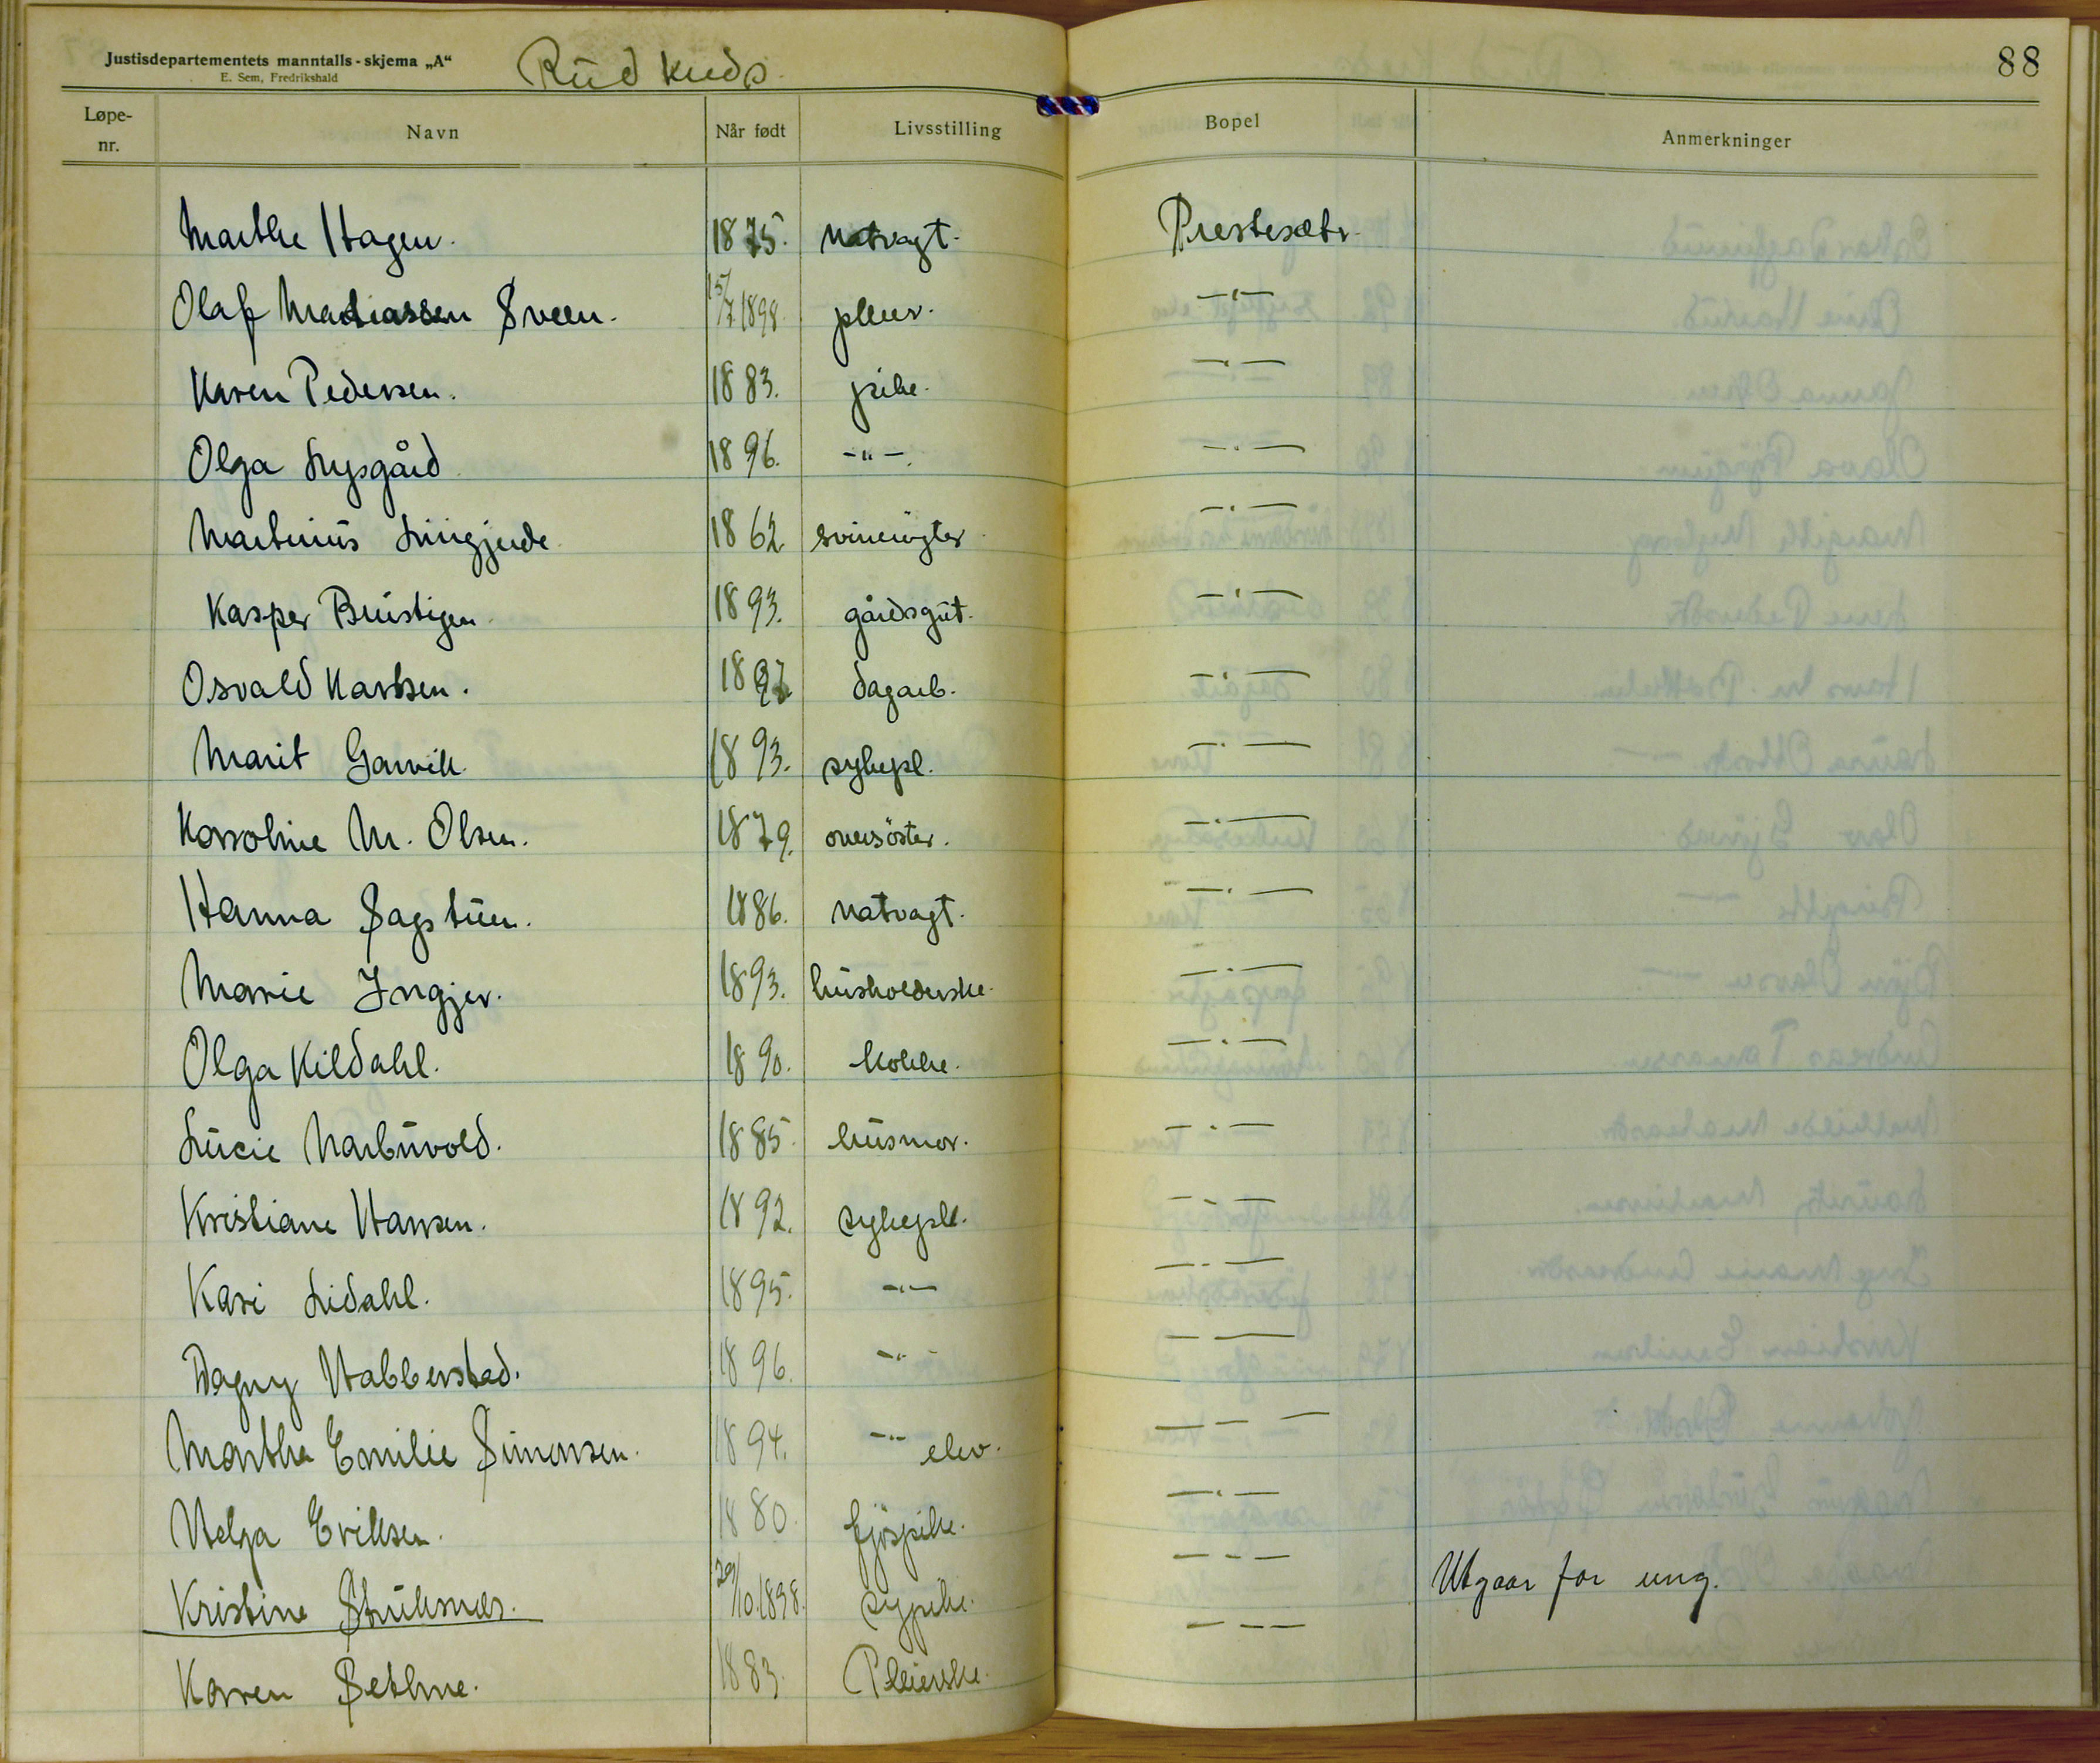 Justisdepartementets manntalls-skjema „A“
E. Sem, Fredrikshald
Rud kreds
88
Løpe-nr. Navn Når født Livsstilling Bopel Anmerkninger
Marthe Hagen. 1875. Natvagt. Prestesæter.
Olaf Mathiassen Sveen. 15/7 1898. pleier. —"—
Karen Pedersen. 1883. pike. —"—
Olga Lysgård 1896. —"—. —"—
Martinius Lingjerde 1862 svinerøgter —"—
Kasper Brustigen 1893. gårdsgut. —"—
Osvald Karlsen. 1897 dagarb. —"—
Marit Garvik. 1893. sykepl. —"—
Karoline M. Olsen. 1879. oversöster. —"—
Hanna Sagstuen. 1886. Natvagt. —"—
Marie Ingjer. 1893. husholderske. —"—
Olga Kildahl. 1890. kokke. —"—
Lucie 1885. husmor. —"—
Kristiane Hansen. 1892. sykepl. —"—
Kari Lidahl. 1895. —"— —"—
Dagny Habberstad. 1896. —"— — —
Marthe Emilie Simonsen. 1894. —"— elev. — — —
Helga Eriksen. 1880. fjöspike. —"—
Kristine 29/10.1898. sypike. — - — Utgaar for ung.
Karen Sethne. 1883. Pleierske. — - —